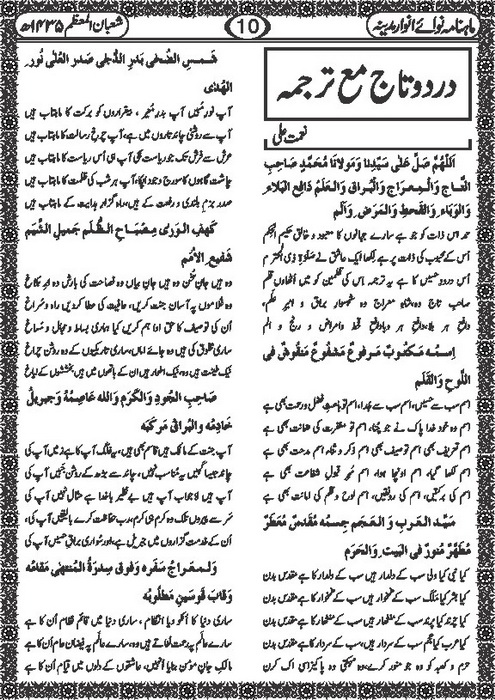 ماہنامہ نوائے انوار مدینہ
10
شعبان المعظم ۱۴۳۵ھ
درود تاج مع ترجمہ
نعمت علی
اَللّٰهُمَّ صَلِّ عَلٰى سَيِّدِنَا وَمَوْلَانَا مُحَمَّدٍ صَاحِبِ
التَّاجِ وَالْمِعْرَاجِ وَالْبُرَاقِ وَالْعَلَمْ دَافِعِ الْبَلَاءِ
وَالْوَبَاءِ وَالْقَحْطِ وَالْمَرَضِ وَالْاَلَمِ
حمد اس ذات کو جو ہے سارے جہانوں کا معبود و خالق حکیم الحکم
اس کے محبوب کی ذات پر ہے لکھا ایک عاشق نے صلوٰۃ ذی
اس درود حسیں کا ہے یہ ترجمہ اس کی تضمین کو میں اٹھاؤں قلم
صاحب تاج وہ، شاہ معراج وہ شہسوار براق و امیر علم،
دافع ہر بلا، دافع ہر وبا، دافع قحط وامراض و رنج و الم
اِسْمُهٗ مَكْتُوْبٌ مَرْفُوْعٌ مَشْفُوْعٌ مَنْقُوْشٌ فِي
اللَّوْحِ وَالْقَلَمِ
اسم سب سے حسیں، اسم سب سے جدا، اسم تو باعث فضل ورحمت بھی ہے
اسم وہ خود خدا پاک نے جو چنا، اسم تو مغفرت کی ضمانت بھی ہے
اسم تعریف بھی، اسم توصیف بھی، اسم ذکر و ثناء، اسم مدحت بھی ہے
اسم لکھا گیا، اسم اونچا ہوا، اسم مہر قبول شفاعت بھی ہے
اسم کی برکتیں، اسم کی رونقیں، اسم لوح و قلم کی امانت بھی ہے
سَيِّدِ الْعَرَبِ وَ الْعَجَمِ جِسْمُهٗ مُقَدَّسٌ مُعَطَّرٌ
مُطَهَّرٌ مُنَوَّرٌ فِي الْبَيْتِ وَالْحَرَمِ
کیا نبی کیا ولی سب کے دلدار ہیں سب کے دلدار کا ہے مقدس بدن
کیا بشر کیا ملک سب کے غمخوار ہیں سب کے غمخوار کا ہے مقدس بدن
کیا چرند کیا پرند سب کے ہیں سب کے کا ہے مقدس بدن
کیا عرب کیا عجم سب کے سردار ہیں سب کے سردار کا ہے مقدس بدن
حرم و کعبہ کو وہ جو منور کرے، وہ وہ پاکیزہ اک کرن
شَمْسِ الضُّحٰى بَدْرِ الدُّجٰى صَدْرِ الْعُلٰى نُوْرِ
الْهُدٰى
آپ نور مبیں آپ بدر منیر، بیقراروں کو برکت کا ماہتاب ہیں
آپ سے روشنی چاند تاروں میں ہے، آپ چرخ رسالت کا ماہتاب ہیں
عرش سے فرش تک جو ریاست کی آپ ہی اس ریاست کا ماہتاب ہیں
چاشت گاہوں کا سورج وجود آپکا، آپ ہر شب کی ظلمت کا ماہتاب ہیں
صدر بزم بلندی و رفعت کے ہیں، راہ گزار ہدایت کے ماہتاب ہیں
كَهْفِ الْوَرٰى مِصْبَاحِ الظُّلَمِ جَمِيْلِ الشِّيَمِ
شَفِيْعِ الْاُمَمِ
وہ ہیں جان سخن وہ ہیں جان بیاں وہ فصاحت کی بارش وہ ابر
وہ غلاموں پہ آسان جنت کریں، عافیت کی عطا کر دیں راہ وسراغ
اُن کی توصیف کا حق ادا ہم کریں کیا ہماری بساط و مجال و
ساری مخلوق کی ہیں وہ جائے اماں، ساری تاریکیوں کے وہ روشن چراغ
نیک طینت ہیں وہ، نیک اطہار ہیں ان کے ہاتھوں میں ہیں بخششوں کے
صَاحِبِ الْجُوْدِ وَالْكَرَمِ وَاللّٰهُ عَاصِمُهٗ وَجِبْرِيْلُ
خَادِمُهٗ وَالْبُرَاقُ مَرْكَبُهٗ
آپ جنت کے مالک ہیں قاسم بھی ہیں، یہ فلک آپ کا ہے زمیں آپ کی
چاند جیسا کہیں یہ مناسب نہیں، چاند سے بڑھ کے روشن جبیں آپ کی
آپ ہیں لاجواب آپ ہیں بے نظیر باخدا ہے مثال نہیں آپ کی
سر سے پیروں تلک وہ کرم ہی کرم، رب حفاظت کرے بالیقیں آپ کی،
اُن کے خدمت گزاروں میں جبریل ہے، اور سواری براق حسیں آپ کی
وَالْمِعْرَاجُ سَفَرُهٗ وَفَوْقَ سِدْرَةُ الْمُنْتَهٰى مَقَامُهٗ
وَقَابَ قَوْسَيْنِ مَطْلُوْبُهٗ
ساری دنیا کا انتظام، ساری دنیا میں قائم نظام اُن کا ہے
سارے عالم پہ رحمت لٹاتے ہیں وہ، سارے عالم پہ فیضان عام اُن کا ہے
مالک جان مومن بنایا انہیں، عاشقوں کے دلوں میں قیام اُن کا ہے